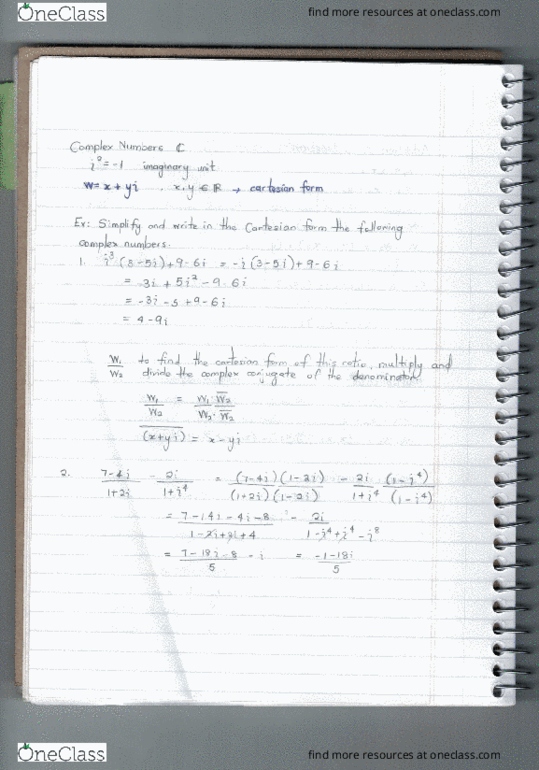 OneClass
find more resources at oneclass.com
Complex Numbers ℂ
i² = -1 imaginary unit
w = x + yi , x, y ∈ ℝ → cartesian form
Ex: Simplify and write in the Cartesian form the following
complex numbers.
1. i³(3-5i)+9-6i = -i(3-5i)+9-6i
= -3i + 5i² - 9 - 6i
= -3i - 5 + 9 - 6i
= 4 - 9i
W₁/W₂ to find the cartesian form of this ratio, multiply and
divide the complex conjugate of the denominator
W₁/W₂ = W₁·W̅₂ / W₂·W̅₂
(x+yi)‾ = x - yi
2. (7-4i)/(1+2i) - 2i/(1+i⁴) = (7-4i)(1-2i)/(1+2i)(1-2i) - 2i/(1+i⁴) (1-i⁴)/(1-i⁴)
= (7-14i-4i-8)/(1-2i+2i+4) - 2i/(1-i⁴+i⁴-i⁸)
= (7-18i-8)/5 - i = (-1-18i)/5
OneClass
find more resources at oneclass.com